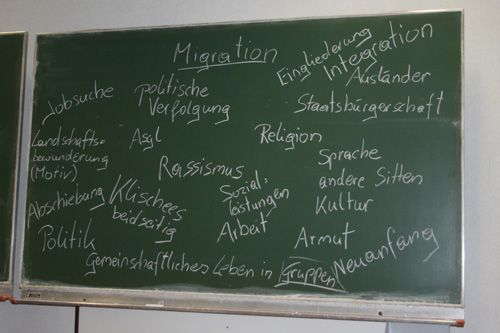 Migration
Eingliederung
Integration
Ausländer
Jobsuche
politische
Verfolgung
Staatsbürgerschaft
Landschafts-
bewunderung
(Motiv)
Asyl
Religion
Rassismus
Sprache
andere Sitten
Kultur
Abschiebung
Klischees
beidseitig
Sozial-
leistungen
Arbeit
Armut
Politik
Neuanfang
Gemeinschaftliches Leben in Gruppen